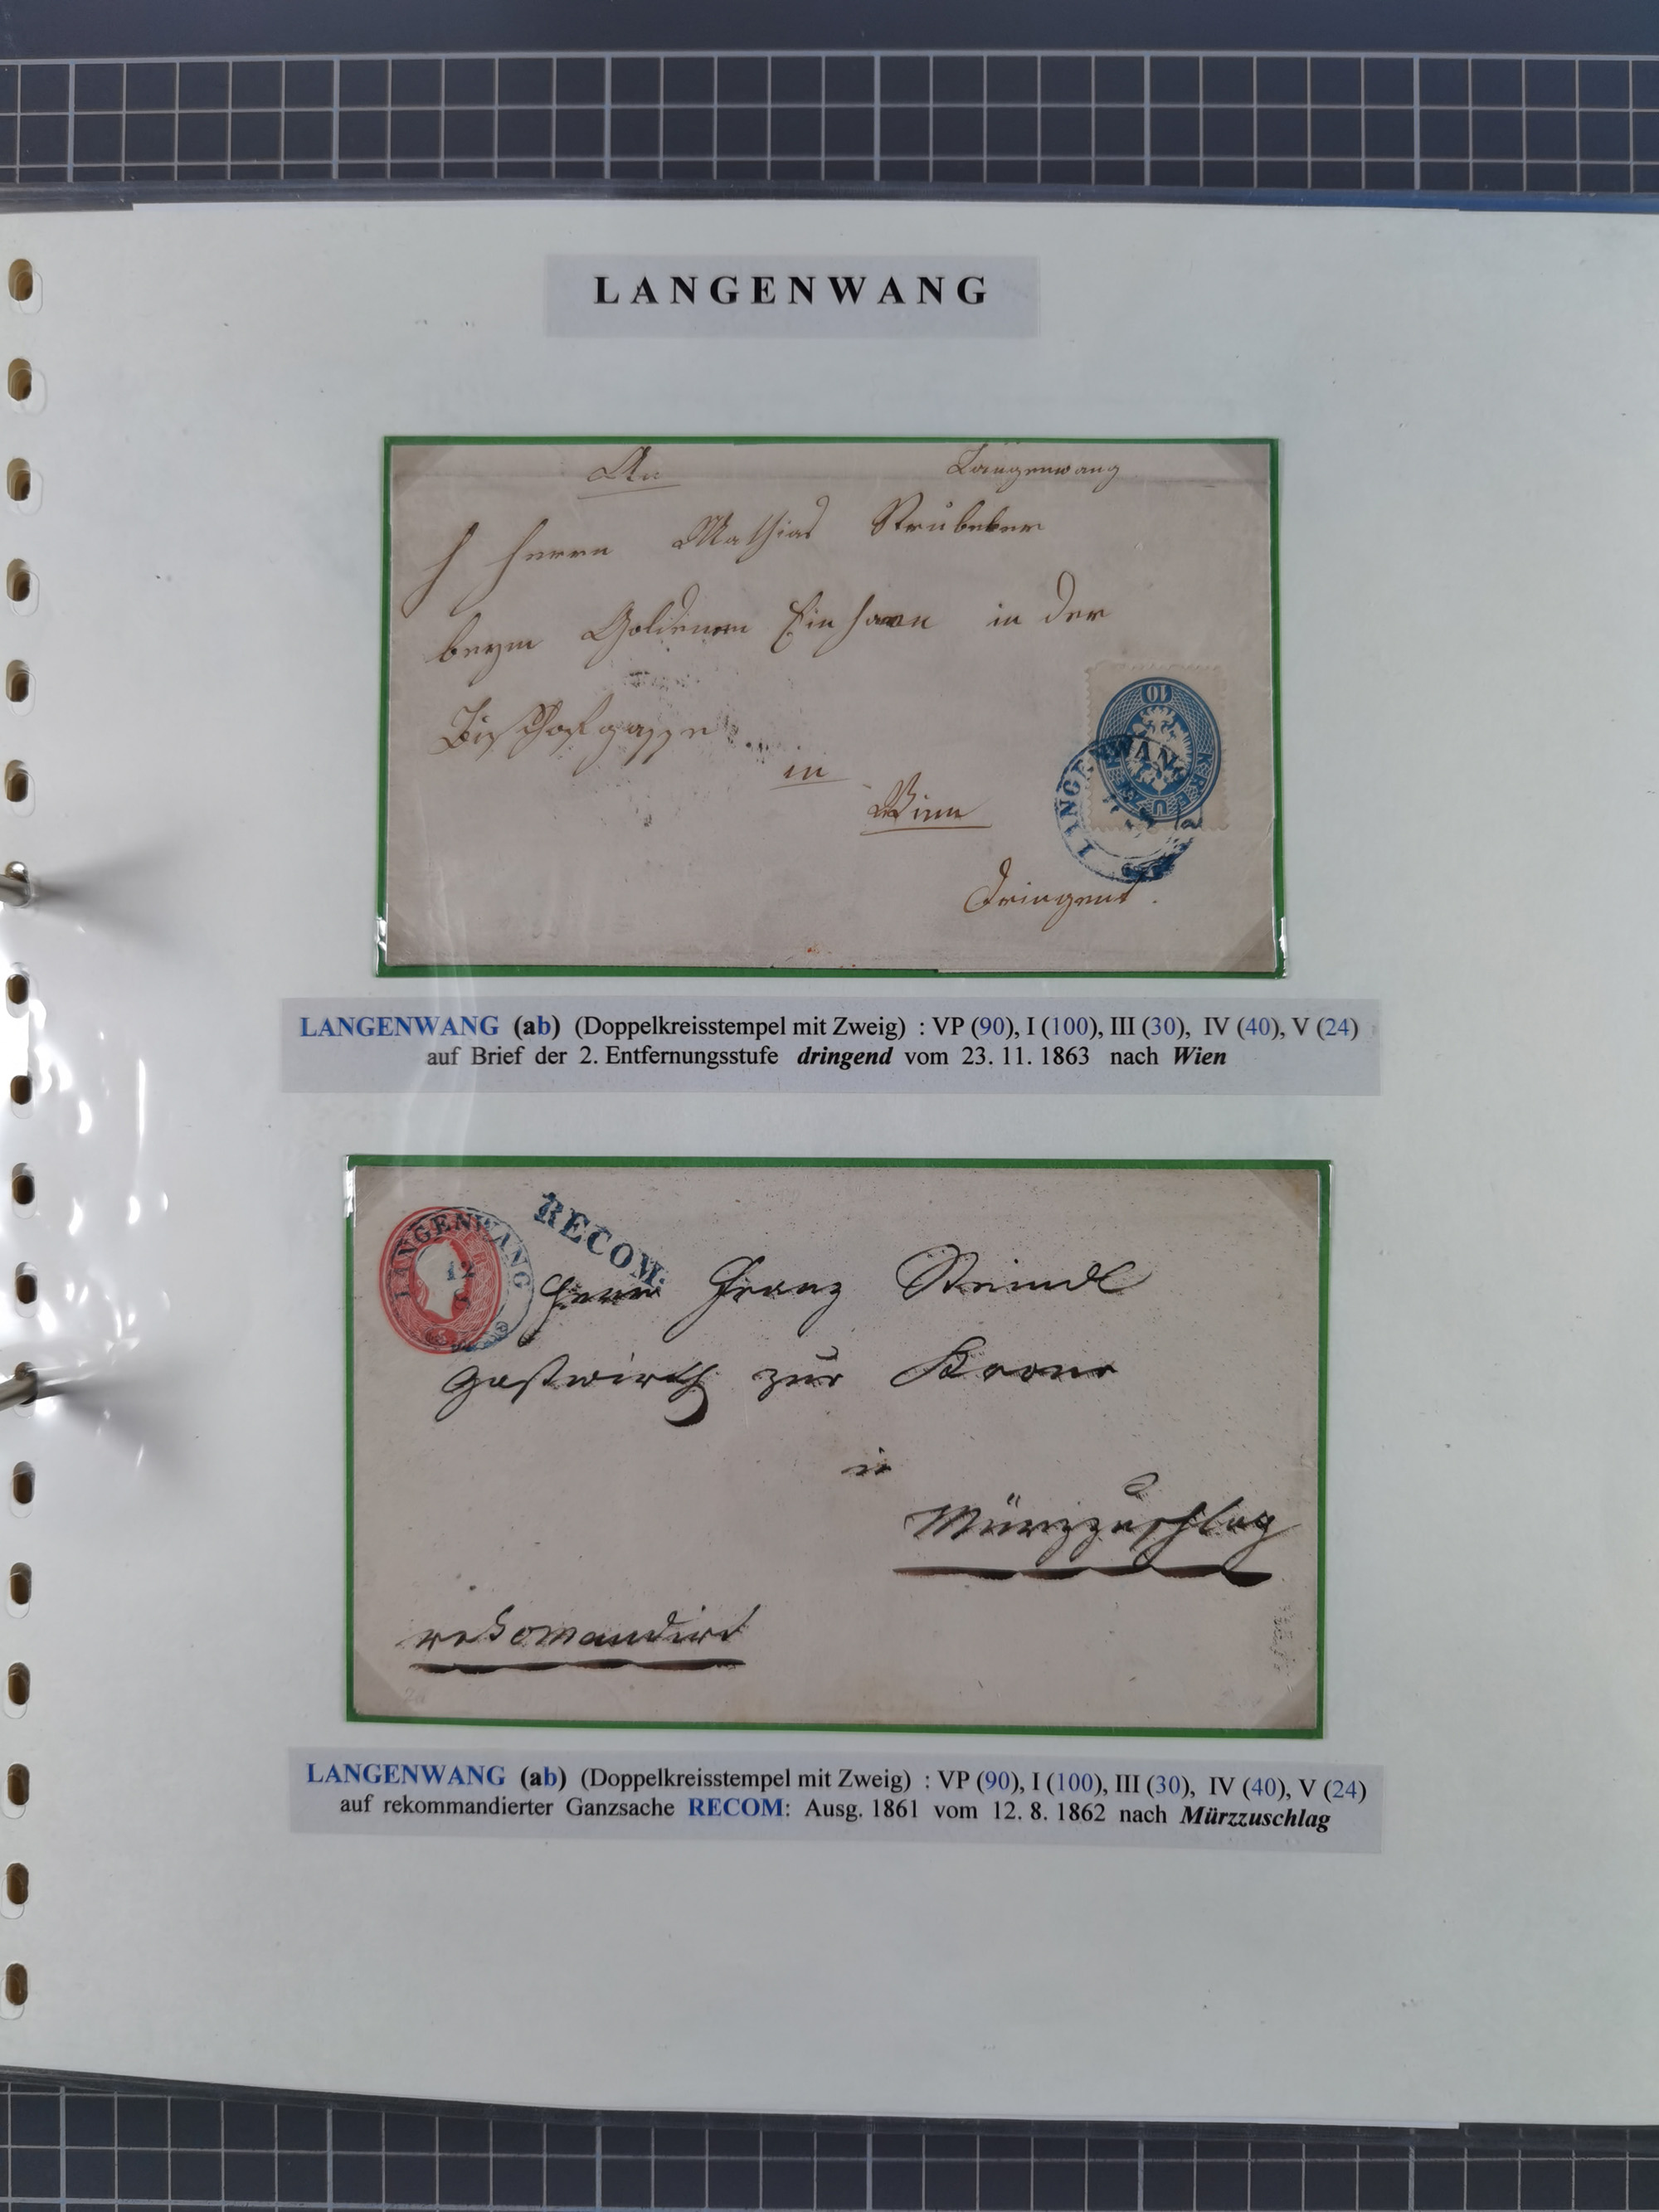 LANGENWANG
An
Langenwang
Herrn Mathias
beym Goldenen Einhorn in der
Bischofgasse
in
Wien
Dringend.
10
LANGENWANG
LANGENWANG (ab) (Doppelkreisstempel mit Zweig) : VP (90), I (100), III (30), IV (40), V (24)
auf Brief der 2. Entfernungsstufe dringend vom 23. 11. 1863 nach Wien
LANGENWANG
12
8
RECOM:
Herrn Franz Steindl
Gastwirth zur Krone
in
Mürzzuschlag
rekomandirt
LANGENWANG (ab) (Doppelkreisstempel mit Zweig) : VP (90), I (100), III (30), IV (40), V (24)
auf rekommandierter Ganzsache RECOM: Ausg. 1861 vom 12. 8. 1862 nach Mürzzuschlag